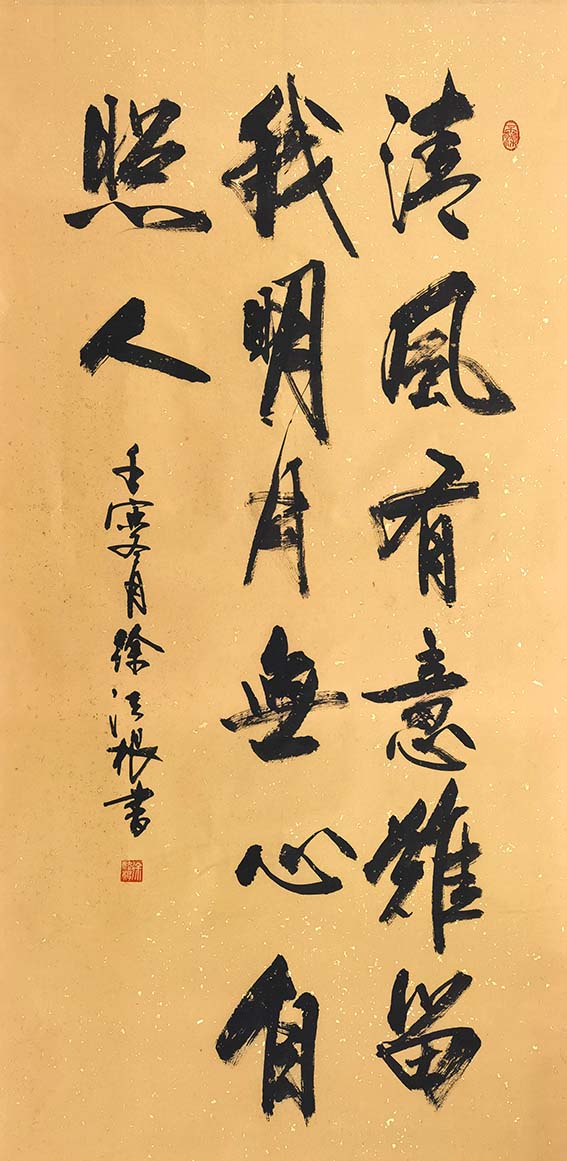 清風有意難留
我明月無心自
照人
壬寅冬月徐江根书